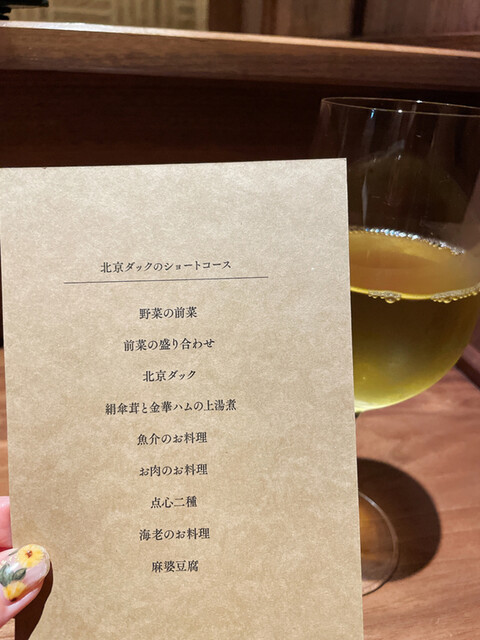 北京ダックのショートコース
野菜の前菜
前菜の盛り合わせ
北京ダック
絹傘茸と金華ハムの上湯煮
魚介のお料理
お肉のお料理
点心二種
海老のお料理
麻婆豆腐